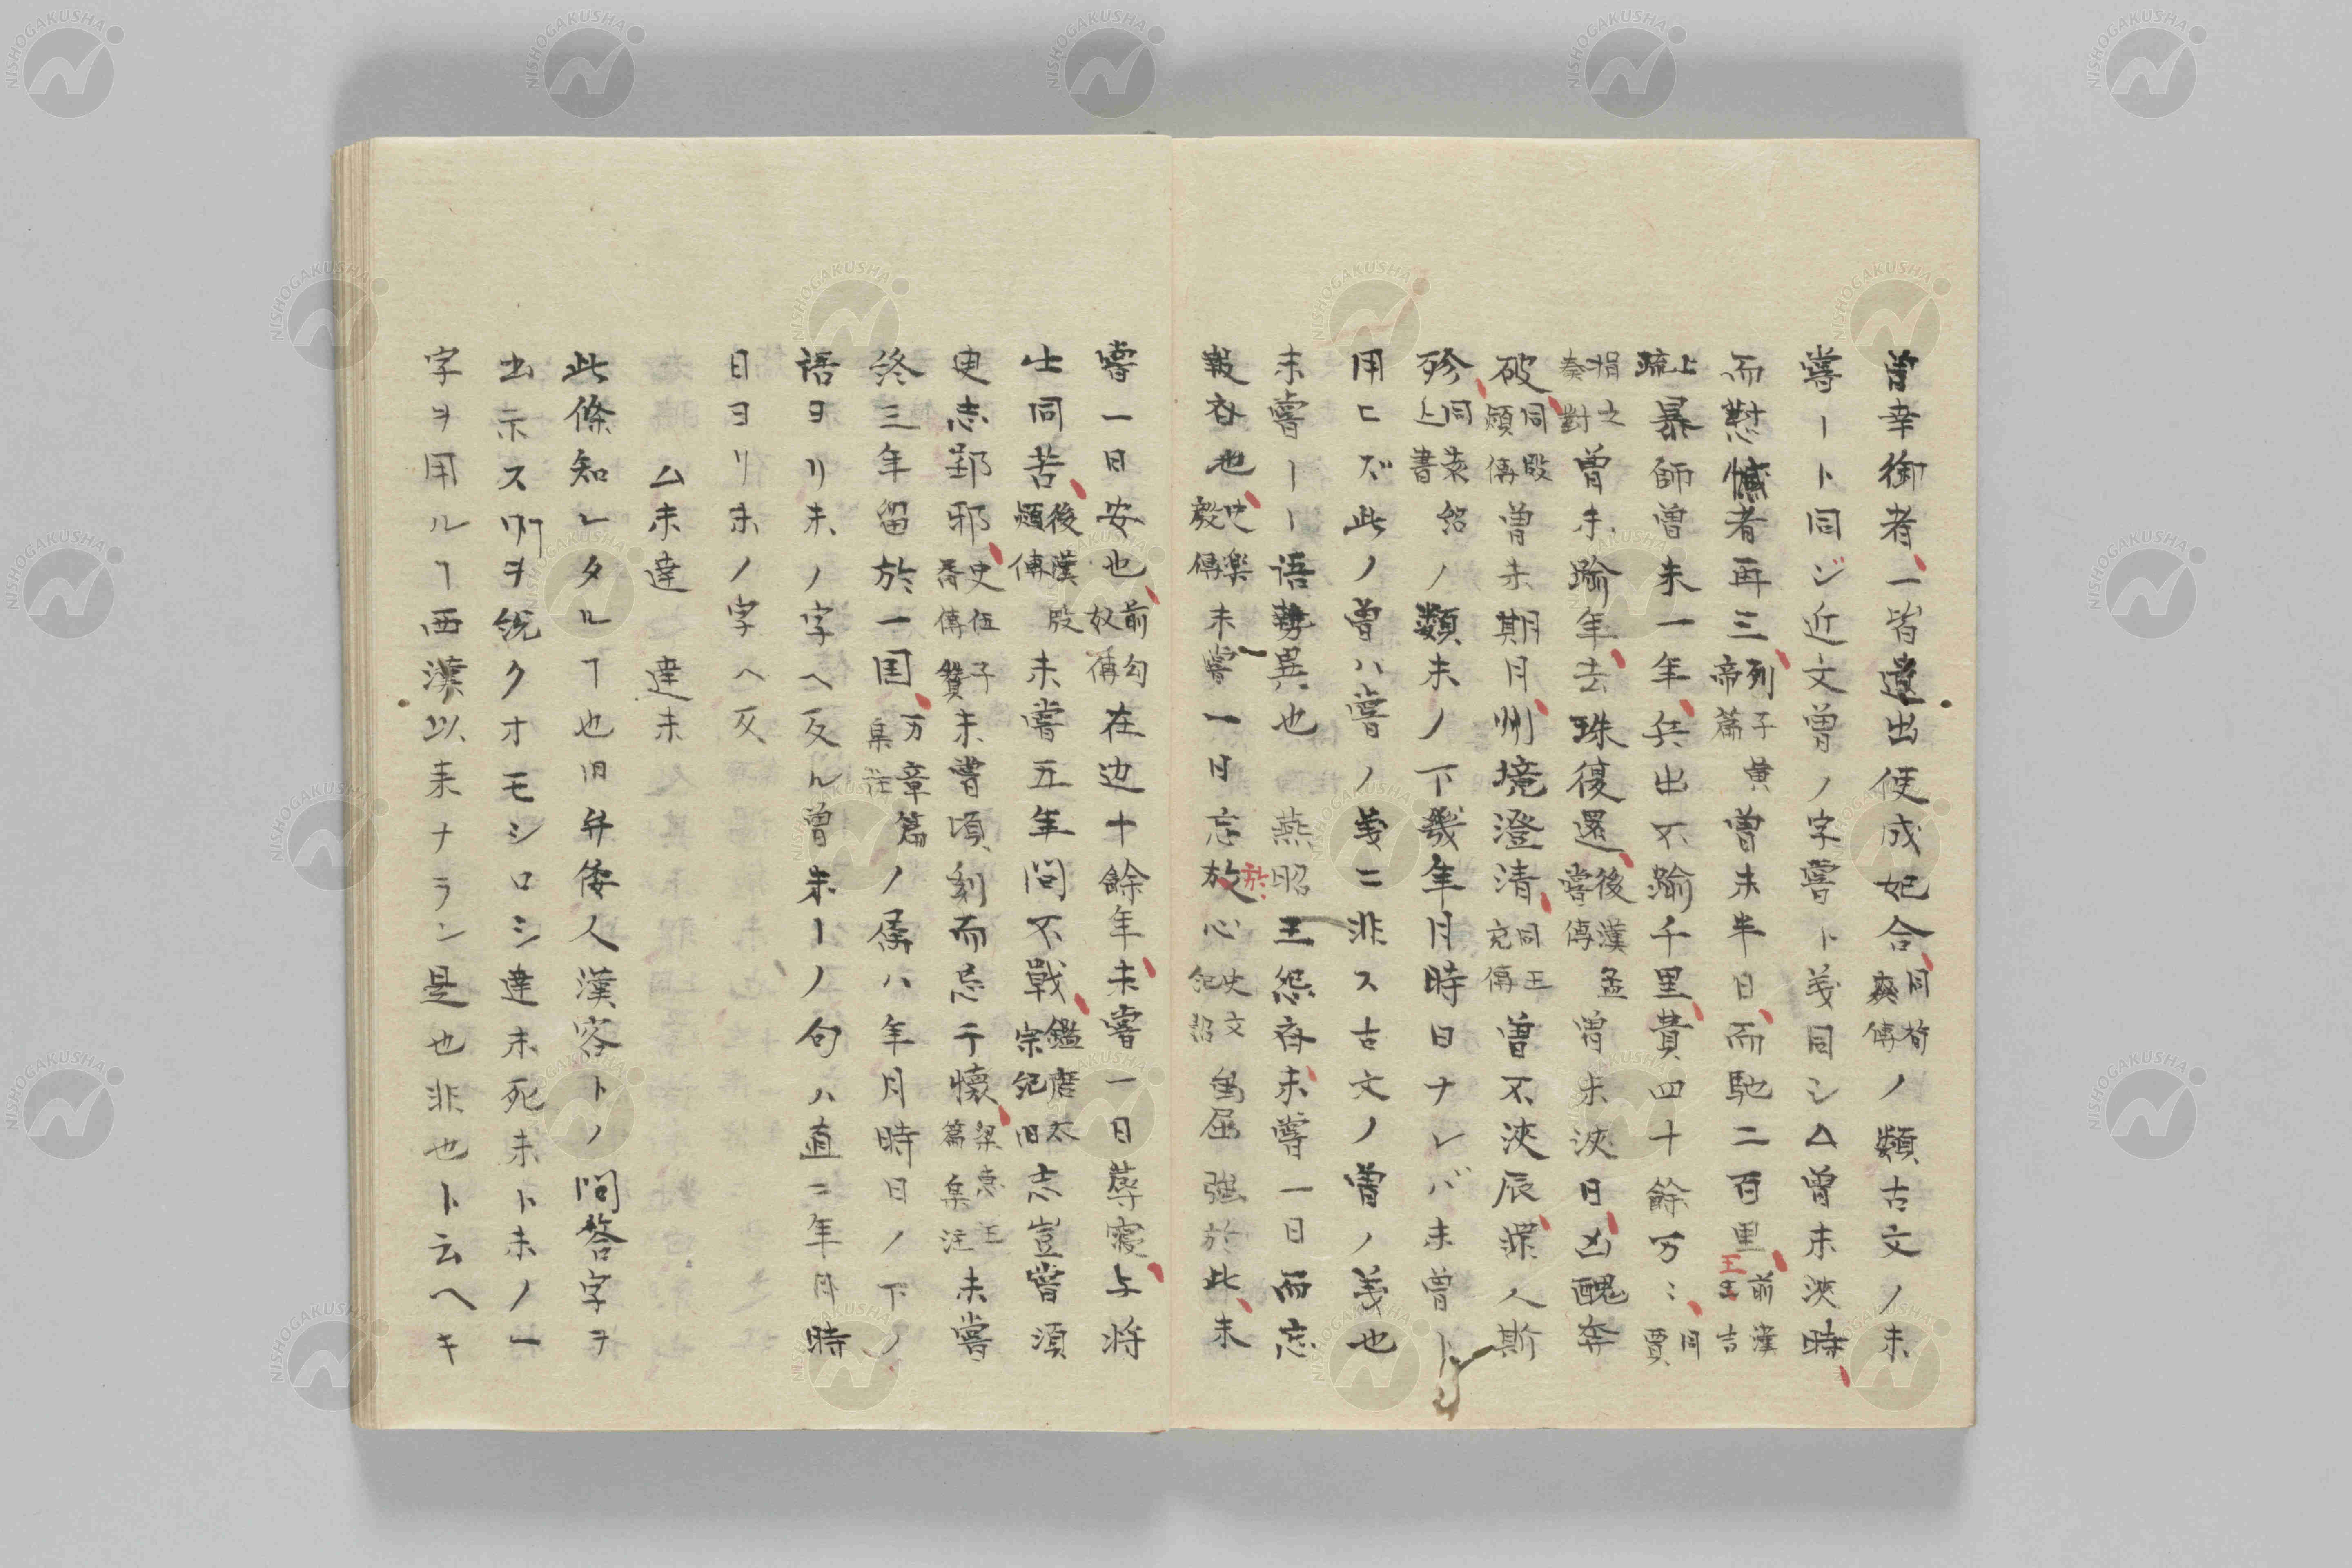 曽幸御者一皆遣出使成妃合同荀爽傳ノ類古文ノ未
嘗ート同ジ近文曽ノ字嘗ト義同シム曽未浹時
而懟憾者再三列子黄帝篇曽未半日而馳二百里前漢王吉
上疏暴師曽未一年兵出不踰千里費四十餘万〻同賈
捐之奏對曽未踰年去珠復還後漢孟嘗傳曽未浹日凶醜奔
破同段熲傳曽未期月州境澄清同王充傳曽不浹辰罪人斯
殄同袁紹上書ノ類未ノ下幾年月時日ナレバ未曽ト
用ヒズ此ノ曽ハ嘗ノ義ニ非ス古文ノ曽ノ義也
未嘗ーー語勢異也 燕昭王怨斉未嘗一日而忘
報斉也史楽毅傳未嘗一日忘於心史文紀詔 屈強於此未
嘗一日安也前匈奴傳在边十餘年未嘗一日蓐寝与将
士同苦後漢段熲傳未嘗五年間不戰鑑唐太宗紀旧志豈嘗須
臾志郢邪史伍子胥傳賛未嘗頃刻而忘于懐梁惠王篇集注未嘗
終三年留於一国万章篇集注ノ僑ハ年月時日ノ下ノ
語ヨリ未ノ字ヘ反ル曽未ーノ句ハ直ニ年月時
日ヨリ未ノ字ヘ反
ム未達 達未
此條知レタルヿ也旧弁倭人漢客トノ問答字ヲ
出示ス所ヲ説クオモシロシ達未死未ト未ノ一
字ヲ用ルヿ西漢以来ナラン是也非也ト云ヘキ